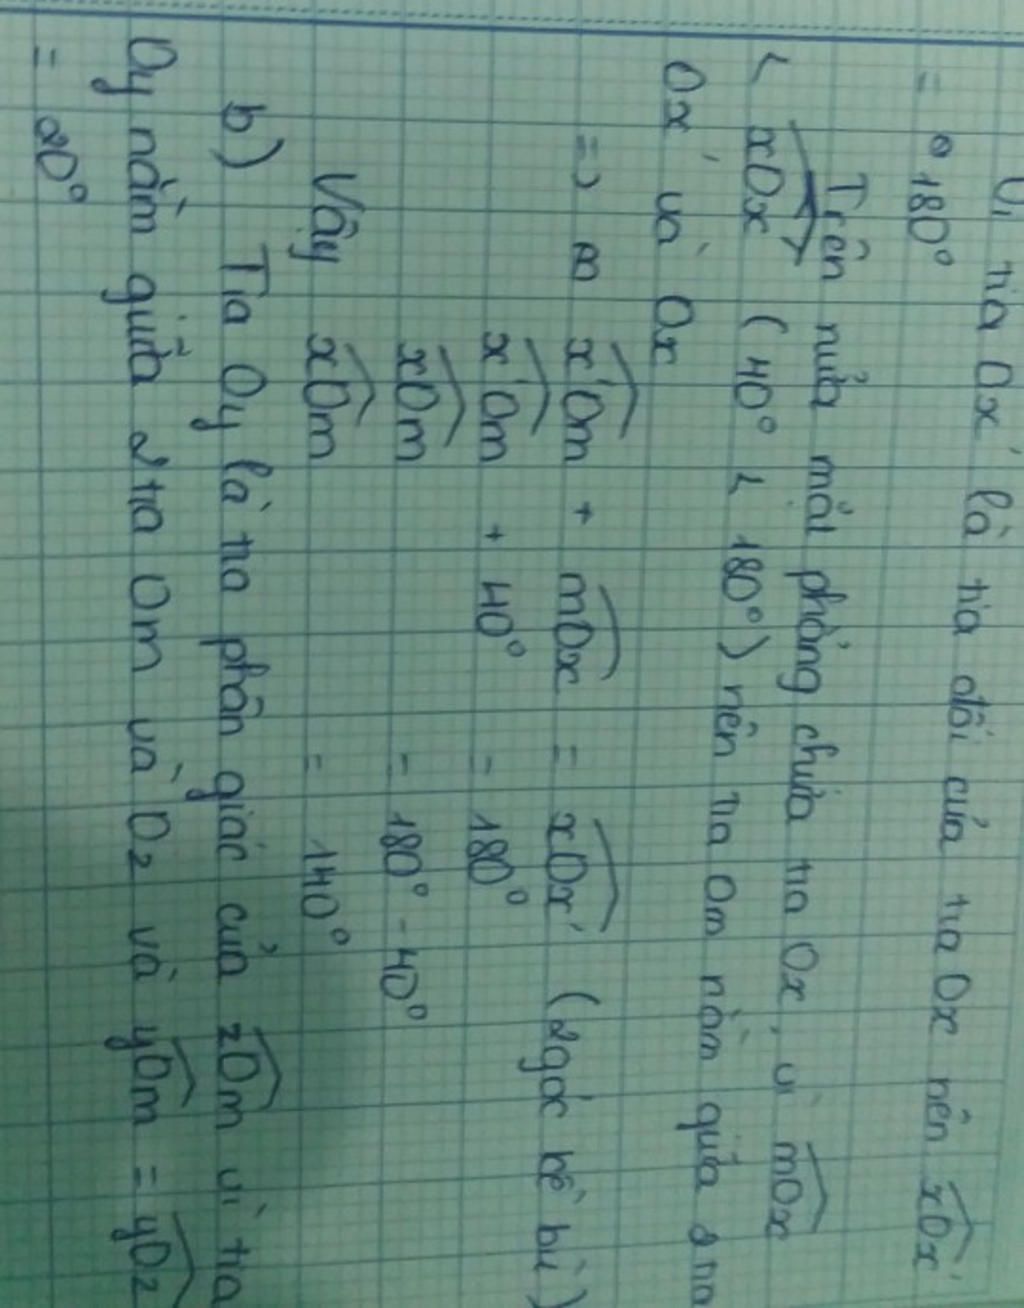 Vì tia Ox' là tia đối của tia Ox nên xOx'
= 180°
Trên nửa mặt phẳng chứa tia Ox, vì mOx
< xOx' (40° < 180°) nên tia Om nằm giữa 2 tia
Ox' và Ox
=> x'Om + mOx = xOx' (2 góc kề bù)
x'Om + 40° = 180°
x'Om = 180° - 40°
Vậy x'Om = 140°
b) Tia Oy là tia phân giác của zOm vì tia
Oy nằm giữa 2 tia Om và Oz và yOm = yOz
= 20°